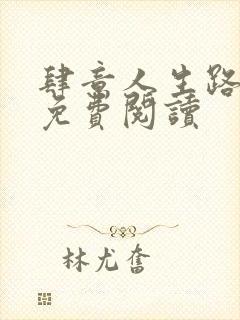 肆意人生路
免費閱讀
林尤奮